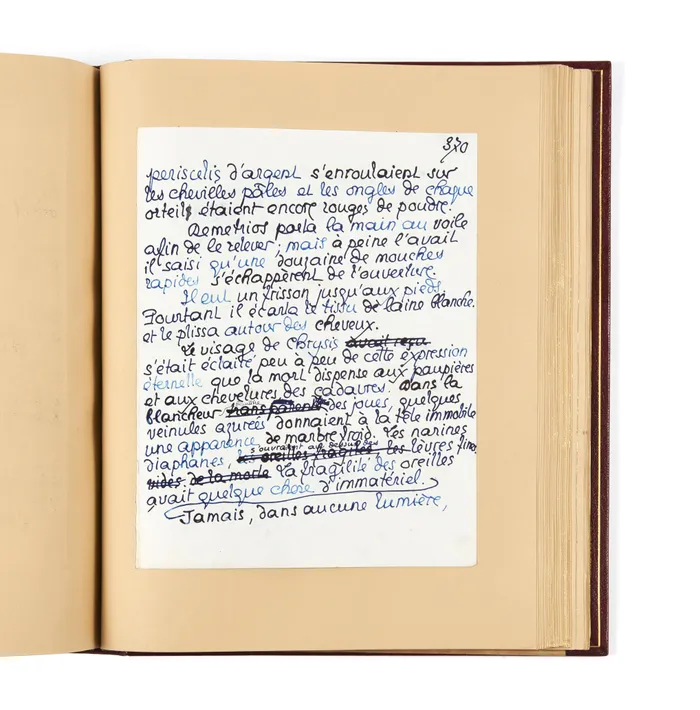 370
periscelis d'argent s'enroulaient sur
les chevilles pâles et les ongles de chaque
orteil étaient encore rouges de poudre.
Demetrios porta la main au voile
afin de le relever; mais à peine l'avait
il saisi qu'une douzaine de mouches
rapides s'échappèrent de l'ouverture.
Il eut un frisson jusqu'aux pieds.
Pourtant il écarta le tissu de laine blanche.
et le plissa autour des cheveux.
Le visage de Chrysis avait reçu
s'était éclairé peu à peu de cette expression
éternelle que la mort dispense aux paupières
et aux chevelures des cadavres. Dans la
blancheur transparente des joues, quelques
veinules azurées donnaient à la tête immobile
une apparence de marbre froid. Les narines
diaphanes, s'ouvraient au-dessus des
oreilles fragiles les lèvres fines
vides de la morte La fragilité des oreilles
avait quelque chose d'immatériel.
Jamais, dans aucune lumière,